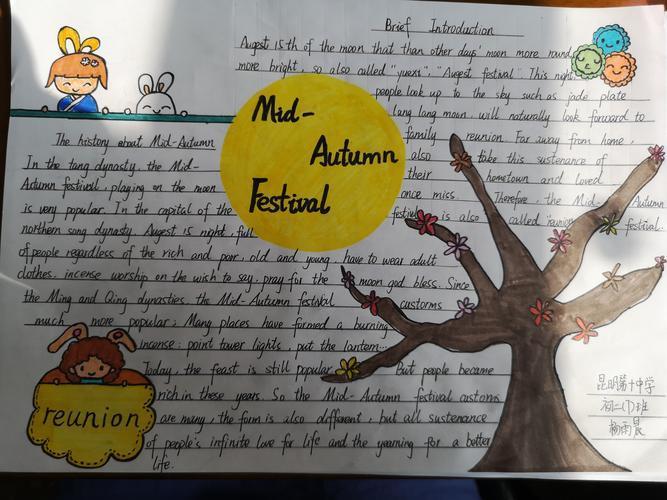 Brief Introduction
Augest 15th of the moon that than other days' moon more round,
more bright, so also called "yuexi", "Augest festival". This night,
people look up to the sky such as jade plate
lang lang moon, will naturally look forward to
family reunion. Far away from home,
also take this sustenance of
their hometown and loved
once miss. Therefore, the Mid-Autumn
festival is also called "reunion festival.
Mid-
Autumn
Festival
The history about Mid-Autumn
In the tang dynasty, the Mid-
Autumn festival, playing on the moon
is very popular. In the capital of the
northern song dynasty Augest is night, full
of people regardless of the rich and poor, old and young, have to wear adult
clothes, incense worship on the wish to say, pray for the moon god bless. Since
the Ming and Qing dynasties, the Mid-Autumn festival customs
much more popular; Many places have formed a burning
incense: point tower lights, put the lantern...
Today, the feast is still popular. But people became
rich in these years. So the Mid-Autumn festival customs
are many, the form is also different, but all sustenance
of people's infinite love for life and the yearning for a better
life.
reunion
昆明第十中学
初二(1)班
杨雨晨